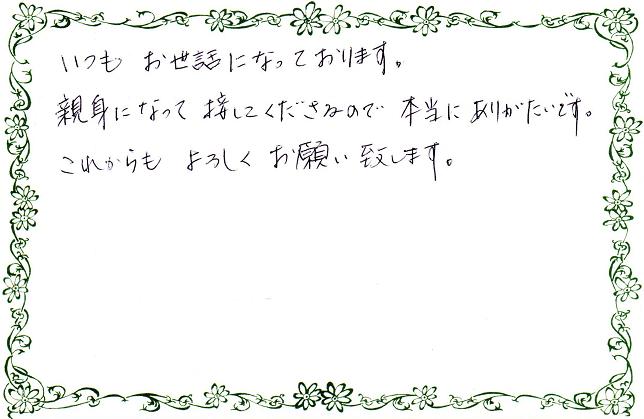 いつも お世話になっております。
親身になって 接してくださるので 本当に ありがたいです。
これからも よろしく お願い致します。